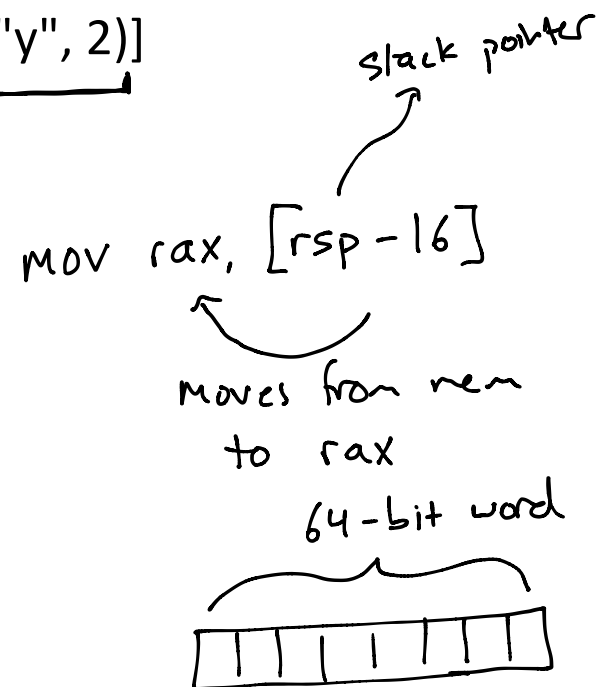 "y", 2)]
stack pointer
mov rax, [rsp - 16]
moves from mem
to rax
64-bit word